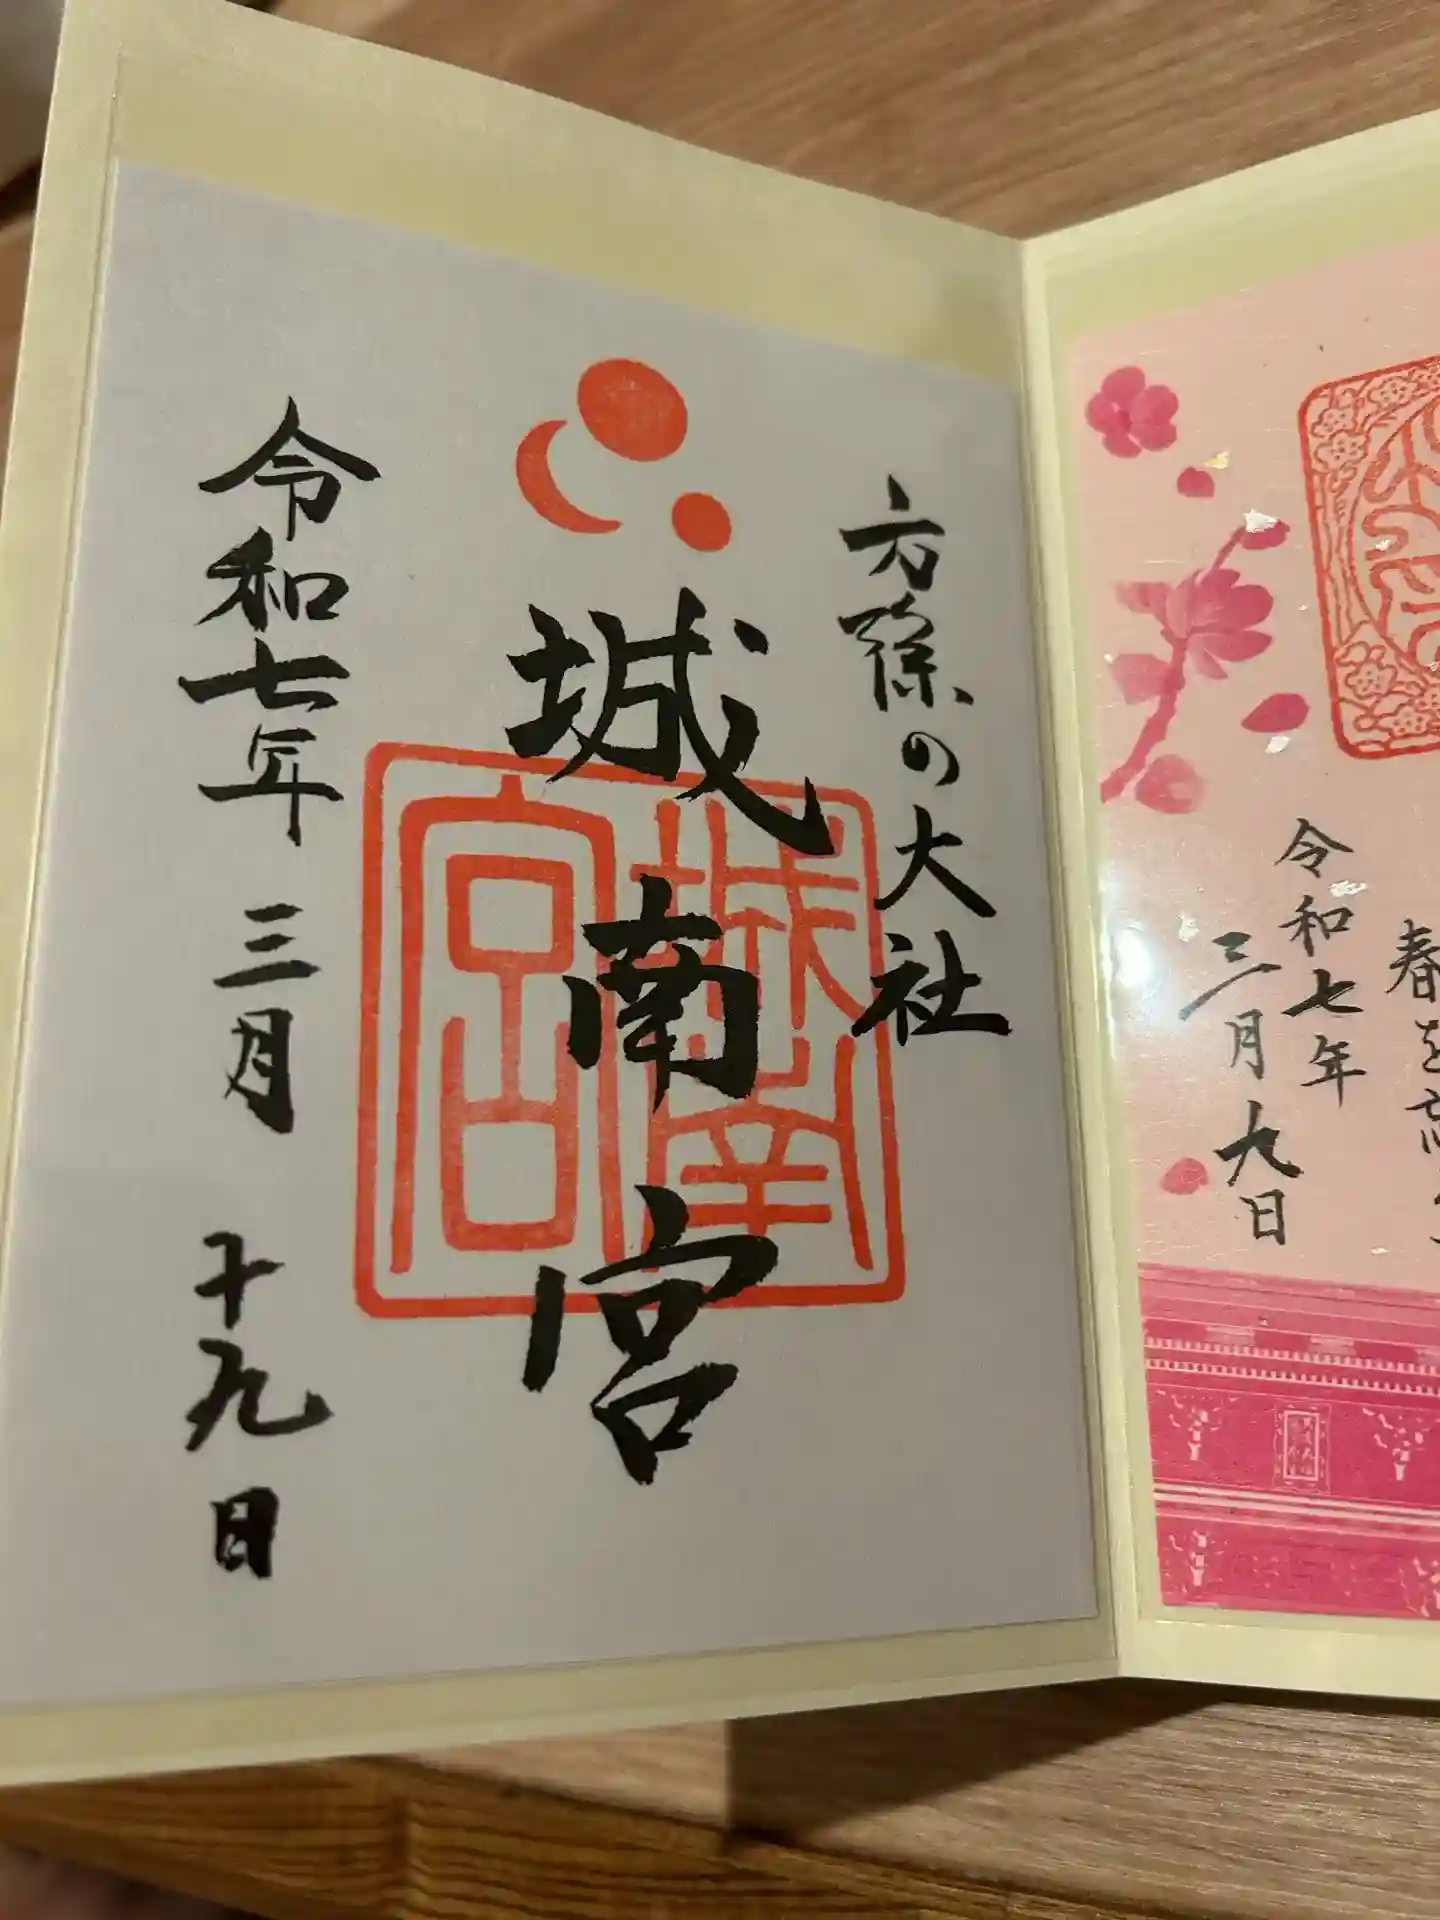 方除の大社
城南宮
令和七年 三月 十九日
城南宮
春を忘
令和七年
三月九日